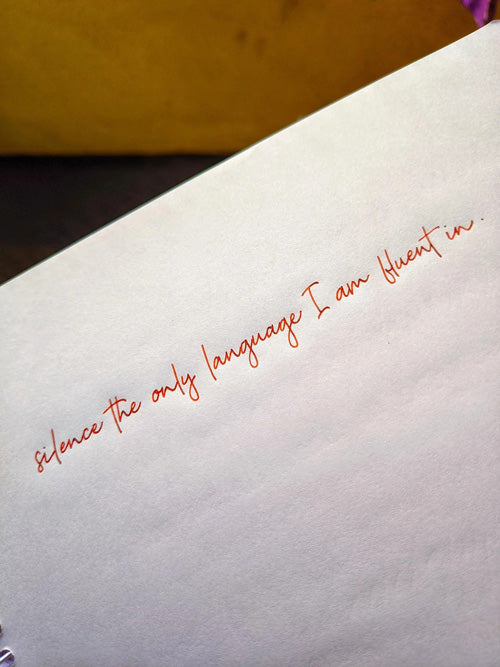 silence the only language I am fluent in.